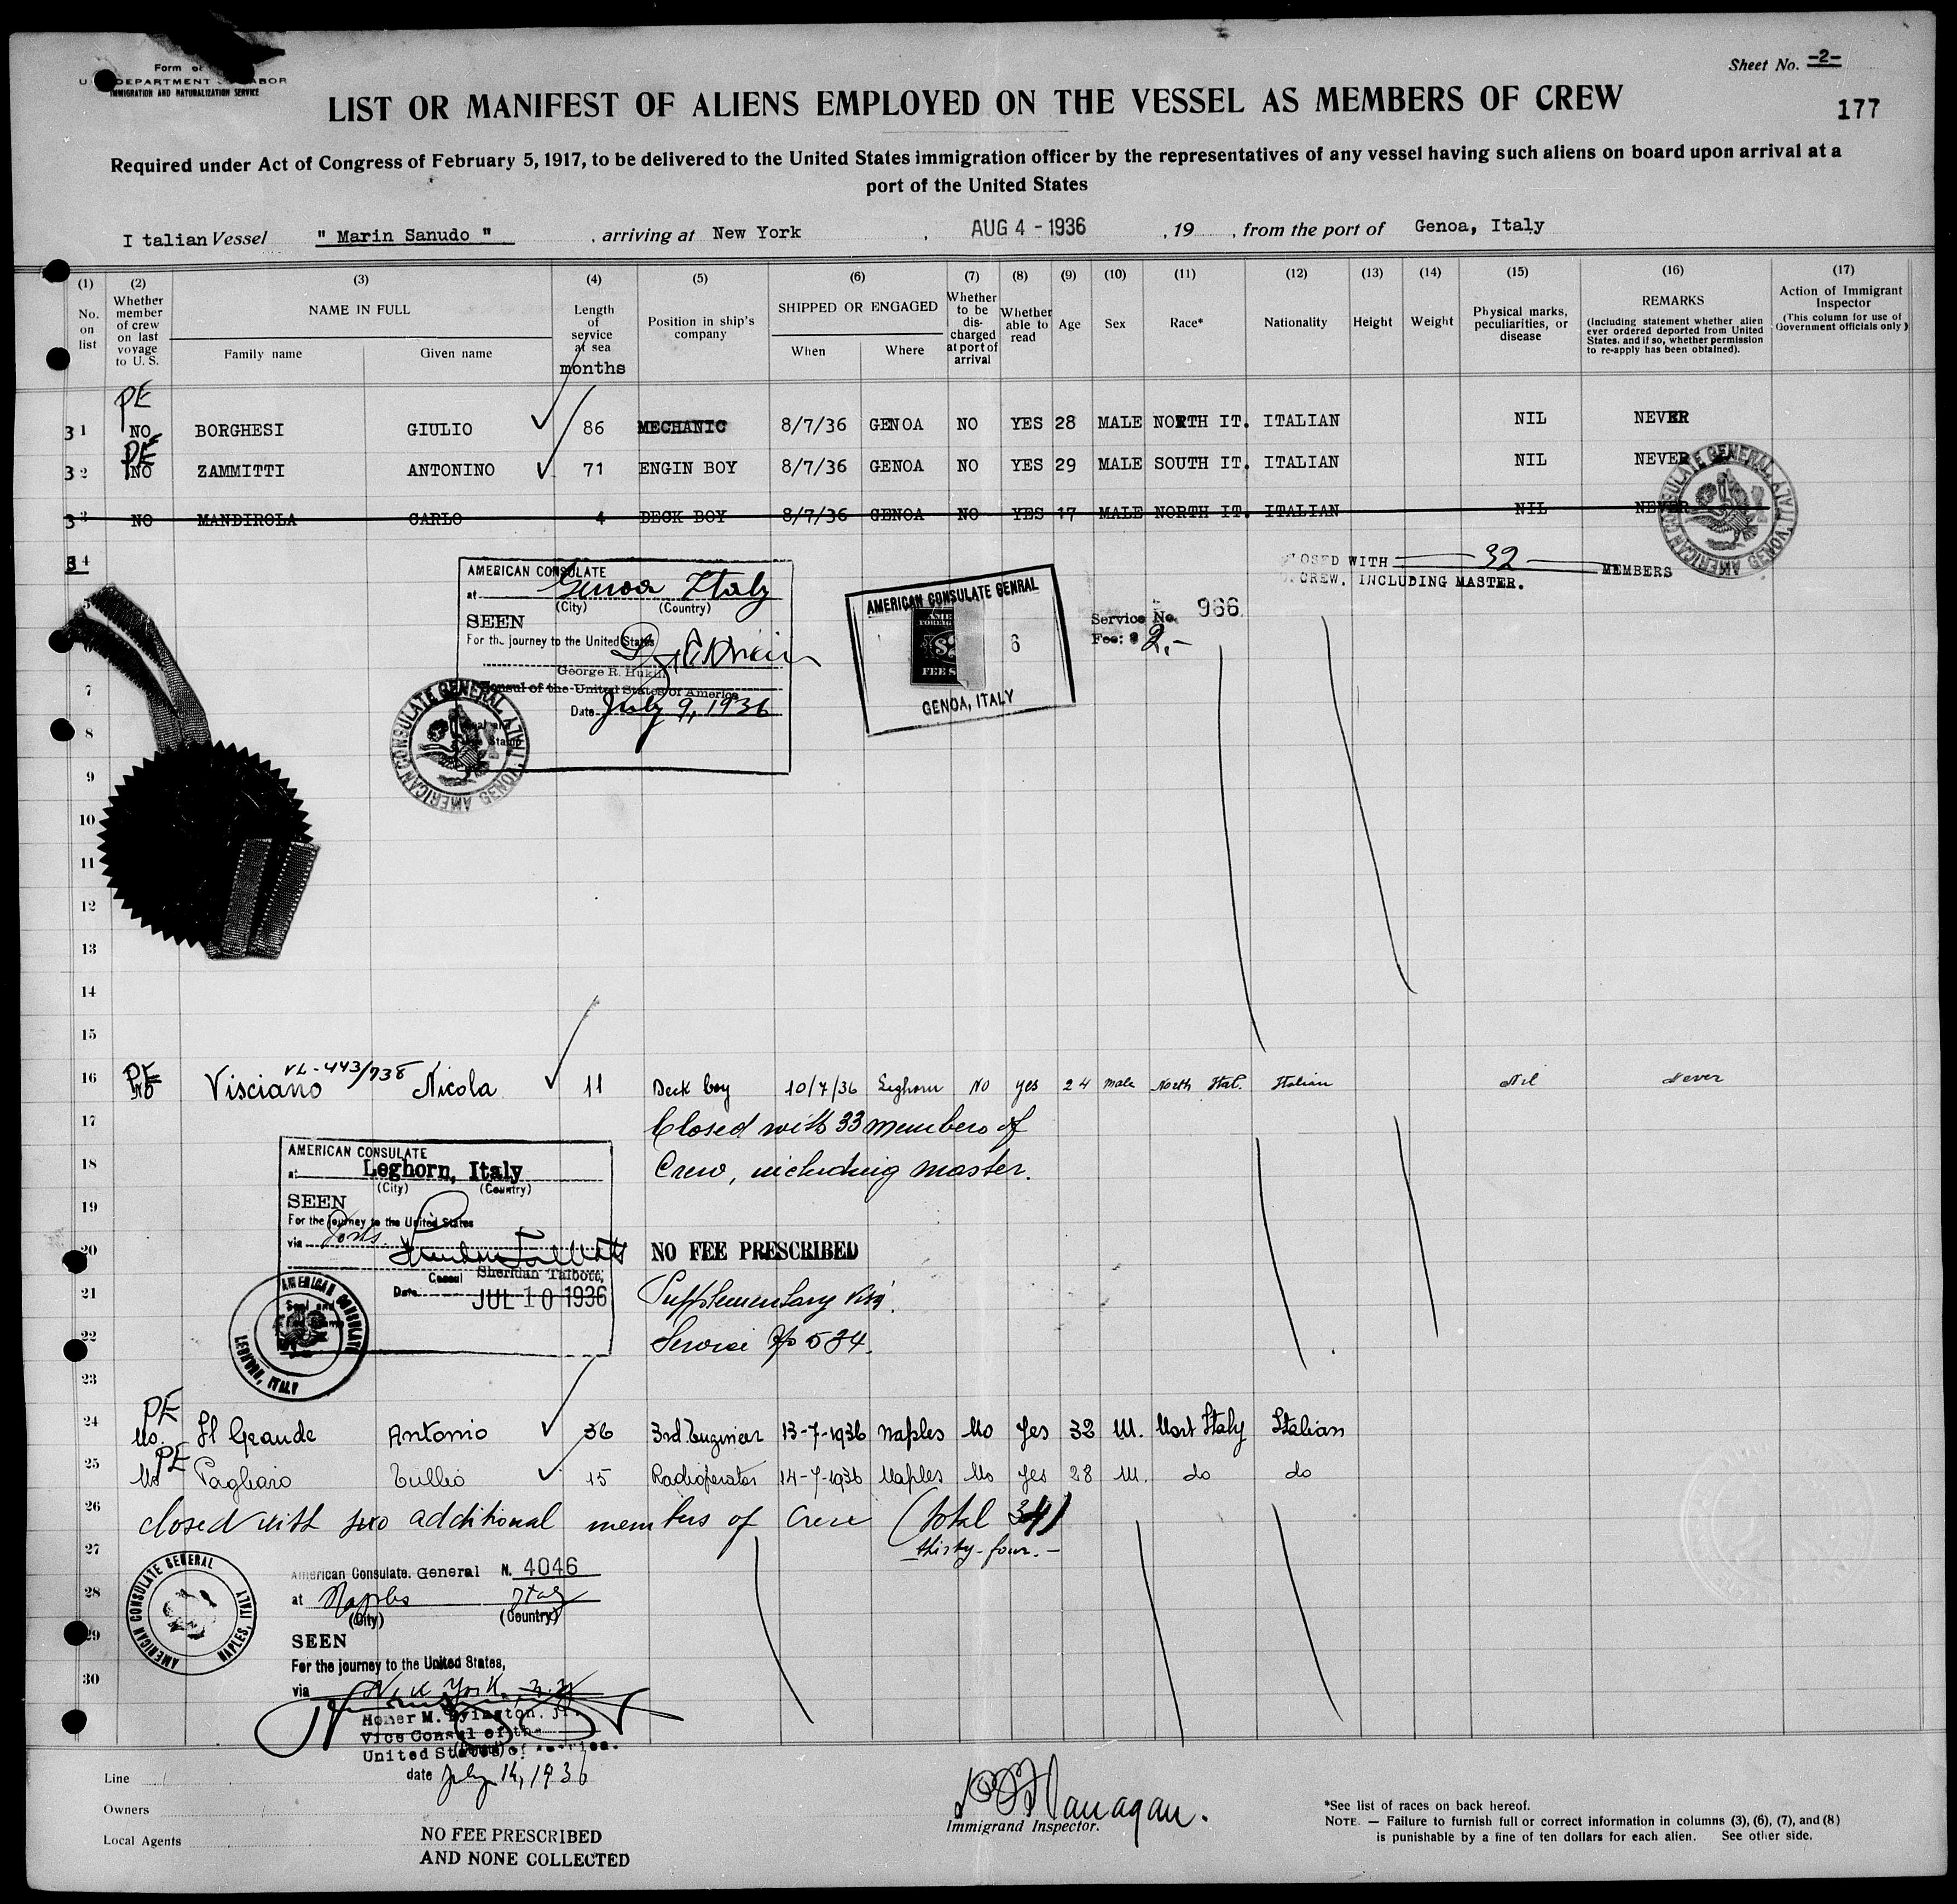 Sheet No. -2-
Form
U. DEPARTMENT LABOR
IMMIGRATION AND NATURALIZATION SERVICE
LIST OR MANIFEST OF ALIENS EMPLOYED ON THE VESSEL AS MEMBERS OF CREW
177
Required under Act of Congress of February 5, 1917, to be delivered to the United States immigration officer by the representatives of any vessel having such aliens on board upon arrival at a
port of the United States
I talian Vessel " Marin Sanudo " , arriving at New York , AUG 4 - 1936 , 19 , from the port of Genoa, Italy
(1) No. on list
(2) Whether member of crew on last voyage to U. S.
(3) NAME IN FULL
Family name Given name
(4) Length of service at sea months
(5) Position in ship's company
(6) SHIPPED OR ENGAGED
When Where
(7) Whether to be discharged at port of arrival
(8) Whether able to read
(9) Age
(10) Sex
(11) Race*
(12) Nationality
(13) Height
(14) Weight
(15) Physical marks, peculiarities, or disease
(16) REMARKS (Including statement whether alien ever ordered deported from United States, and if so, whether permission to re-apply has been obtained).
(17) Action of Immigrant Inspector (This column for use of Government officials only)
PE
31 NO BORGHESI GIULIO 86 MECHANIC 8/7/36 GENOA NO YES 28 MALE NORTH IT. ITALIAN NIL NEVER
PE
32 NO ZAMMITTI ANTONINO 71 ENGIN BOY 8/7/36 GENOA NO YES 29 MALE SOUTH IT. ITALIAN NIL NEVER
33 NO MANDIROLA CARLO 4 DECK BOY 8/7/36 GENOA NO YES 17 MALE NORTH IT. ITALIAN NIL NEVER
34
AMERICAN CONSULATE GENERAL GENOA, ITALY
CLOSED WITH 32 MEMBERS
CREW, INCLUDING MASTER.
AMERICAN CONSULATE
at Genoa Italy
(City) (Country)
SEEN
For the journey to the United States
George R. Hukill
Consul of the United States of America
Date July 9, 1936
AMERICAN CONSULATE GENERAL GENOA, ITALY
AMERICAN CONSULATE GENRAL
FEE S
6
GENOA, ITALY
Service No. 966
Fee: $ 2.-
7
8
9
10
11
12
13
14
15
PE
VL-443/738
16 NO Visciano Nicola 11 Deck boy 10/7/36 Leghorn No yes 24 male North Ital. Italian Nil Never
17 Closed with 33 members of
18 Crew, including master.
AMERICAN CONSULATE
at Leghorn, Italy
(City) (Country)
SEEN
For the journey to the United States
via
Consul Sheridan Talbott,
Date JUL 10 1936
AMERICAN CONSULATE LEGHORN, ITALY
19
20 NO FEE PRESCRIBED
21 Supplementary visa
22 Service No 534.
23
PE
24 No. Il Grande Antonio 36 3rd Engineer 13-7-1936 Naples No Yes 32 M. Nort Italy Italian
PE
25 No Pagliaro Tullio 15 Radioperator 14-7-1936 Naples No Yes 28 M. do do
26 closed with two additional members of crew (total 34)
27 thirty-four.-
28
29
30
AMERICAN CONSULATE GENERAL NAPLES, ITALY
American Consulate. General N. 4046
at Naples Italy
(City) (Country)
SEEN
For the journey to the United States,
via New York, N.Y.
Homer M. Byington, Jr.
Vice Consul of the
United States of America.
date July 14, 1936
Line
Owners
Local Agents
NO FEE PRESCRIBED
AND NONE COLLECTED
Flanagan.
Immigrand Inspector.
*See list of races on back hereof.
NOTE. — Failure to furnish full or correct information in columns (3), (6), (7), and (8)
is punishable by a fine of ten dollars for each alien. See other side.